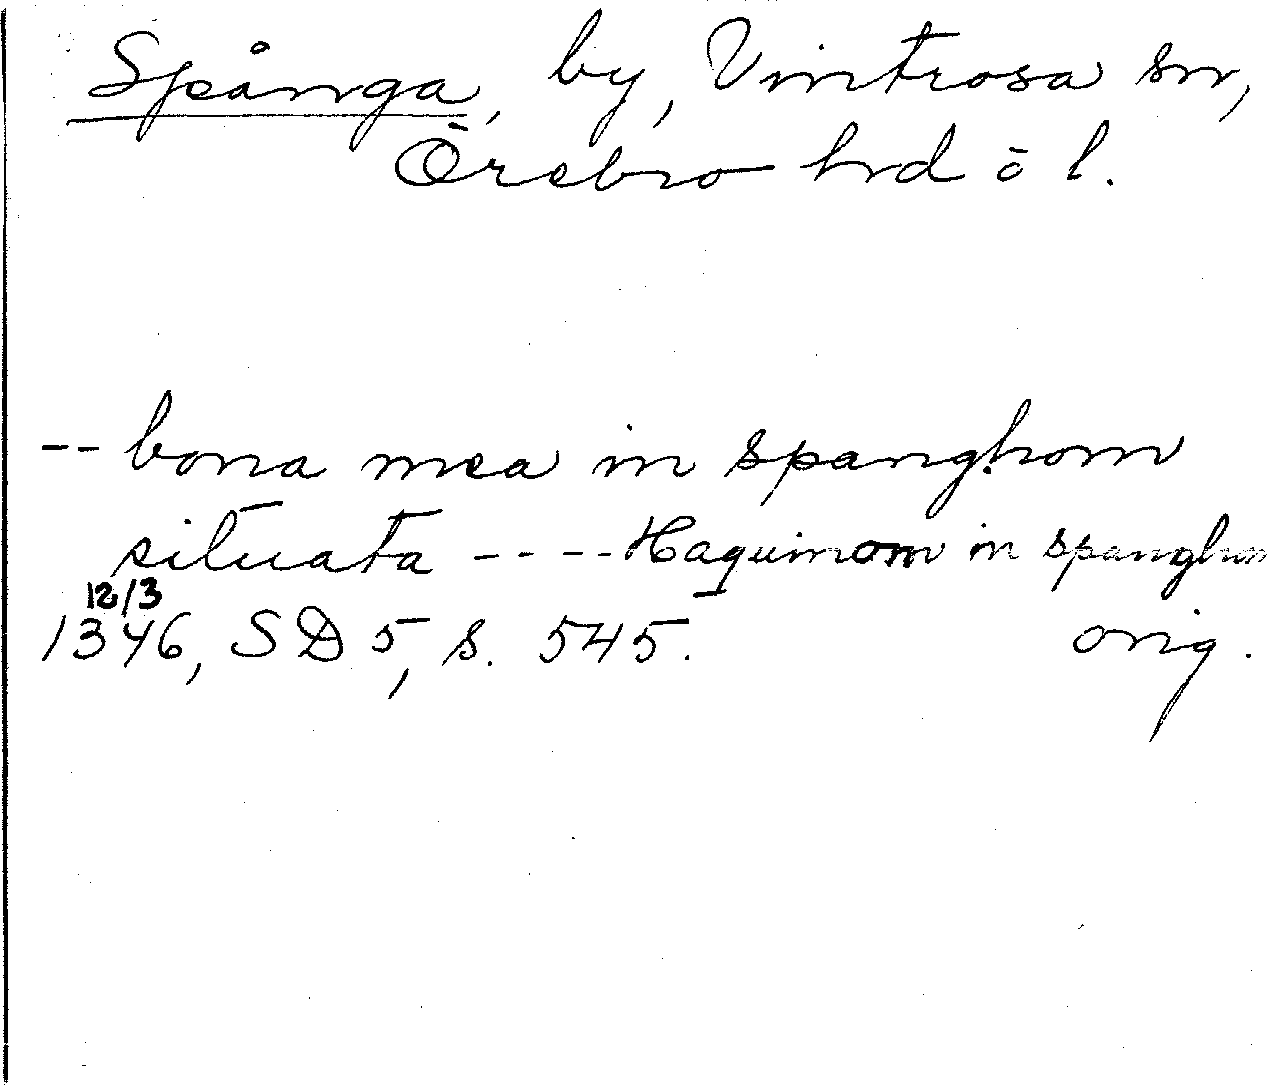 Spånga, by, Vintrosa sn,
Örebro hrd ö l.
-- bona mea in spanghom
situata ---- Haquinom in spanghom
12/3
1346, SD 5, s. 545. orig.